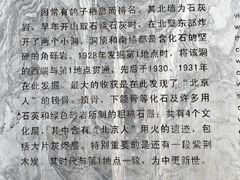 因常有鸽子栖息而得名。其北墙为石灰
岩。早年开山取石烧石灰时，在北壁东部炸
开了两个小洞，洞顶和南墙都是含化石的坚
硬的角砾岩。1928年发掘第1地点时，将该洞
的西端与第1地点贯通，先后于1930、1931年
在此发掘。最大的收获是在此发现了“北京
人”的锁骨、颅骨、下颌骨等化石及许多用
石英和绿色砂岩所制的粗糙石器。共有4个文
化层，其中含有“北京人”用火的遗迹，包
括大片灰烬层。特别重要的是还有一段紫荆
木炭，其时代与第1地点一致，为中更新世。